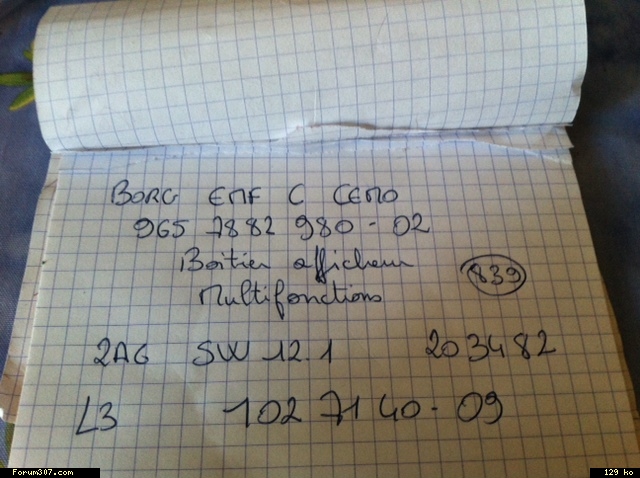 BORG EMF C CEMO
965 7882 980-02
Boîtier afficheur
Multifonctions
839
2AG SW 12.1 203482
L3 102 71 40-09
Forum307.com
129 ko